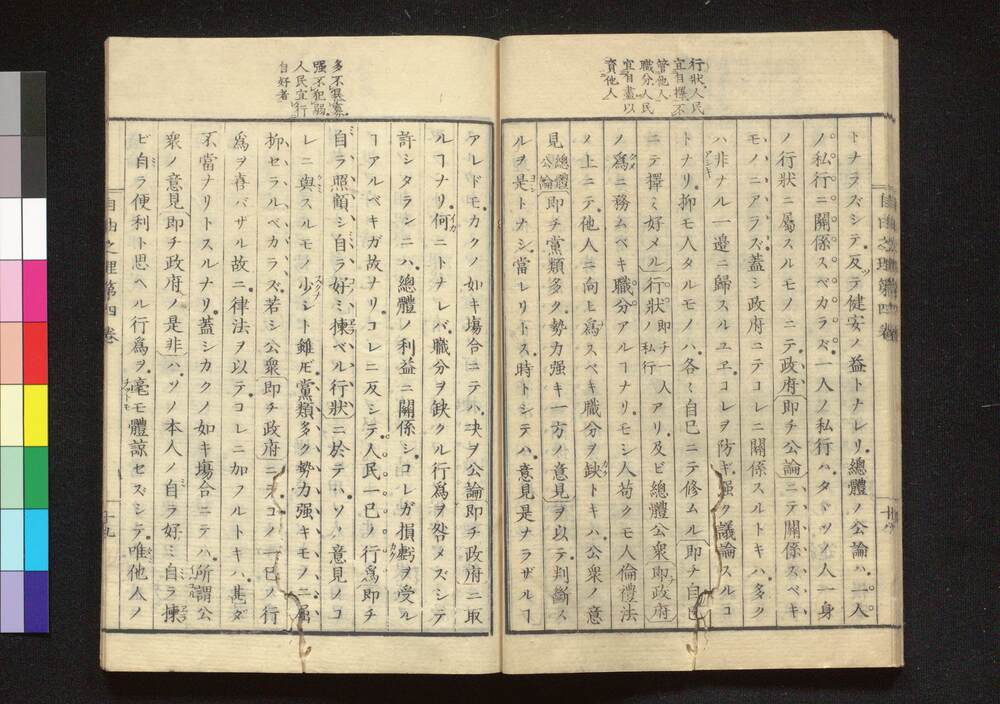 行狀、人民
宜自擇、不
管他人、
職分、人民
宜自盡以
資他人
トナラズシテ反テ健安ノ益トナレリ總體ノ公論ハ一人
ノ私行ニ關係スベカラズ一人ノ私行ハタヾソノ人一身
ノ行狀ニ屬スルモノニテ政府即チ公論ニテ關係スベキ
モノニアラズ蓋シ政府ニテコレニ關係スルトキハ多ク
ハ非ナル一邊ニ歸スルユヱコレヲ防ギ强ク議論スルコ
トナリ抑モ人タルモノハ各々自己ニテ修ムル即チ自己
ニテ擇ミ好メル行狀即チ一人ノ私行アリ及ビ總體公衆即政府
ノ爲ニ務ムベキ職分アルヿナリモシ人苟クモ人倫禮法
ノ上ニテ他人ニ向ヒ爲スベキ職分ヲ缺トキハ公衆ノ意
見總體公論即チ黨類多ク勢力强キ一方ノ意見ヲ以テ判斷ス
ルヲ是トナシ當レリトス時トシテハ意見是ナラザルヿ
自由之理第四卷
十八
多不異寡、
强不犯弱、
人民宜行
自好者
アレドモカクノ如キ塲合ニテハ决ヲ公論即チ政府ニ取
ルヿナリ何ニトナレバ職分ヲ缺クル行爲ヲ咎メズシテ
許シタランニハ總體ノ利益ニ關係シコレガ損虧ヲ受ル
ヿアルベキガ故ナリコレニ反シテ人民一己ノ行爲即チ
自ラ照顧シ自ラ好ミ揀ベル行狀ニ於テハソノ意見ノコ
レニ與スルモノ少シト雖ドモ黨類多ク勢力强キモノニ屬
抑セラルベカラズ若シ公衆即チ政府ニテコノ一己ノ行
爲ヲ喜バザル故ニ律法ヲ以テコレニ加フルトキハ甚ダ
不當ナリトスルナリ蓋シカクノ如キ塲合ニテハ所謂公
衆ノ意見即チ政府ノ是非ハソノ本人ノ自ラ好ミ自ラ揀
ビ自ラ便利ト思ヘル行爲ヲ毫モ體諒セズシテ唯他人ノ
自由之理第四卷
十九